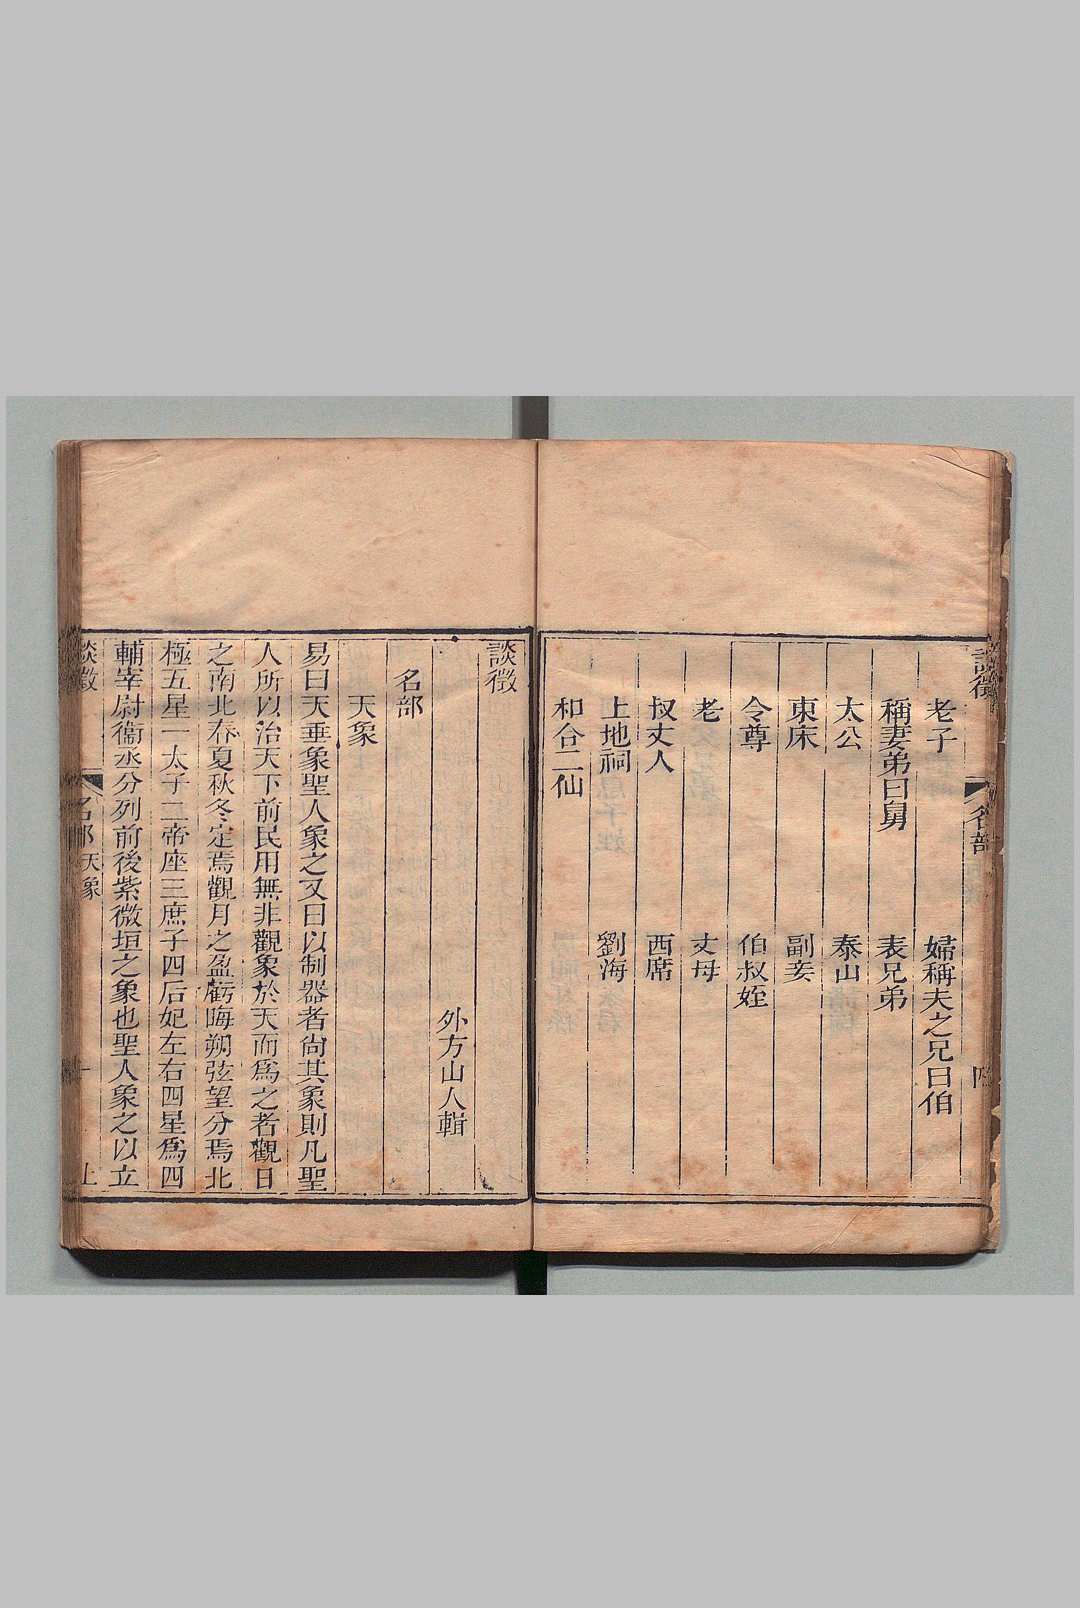 談徵
名部
四
老子
婦稱夫之兄曰伯
稱妻弟曰舅
表兄弟
太公
泰山
東床
副妾
令尊
伯叔姪
老
丈母
叔丈人
西席
土地祠
劉海
和合二仙
談徵
外方山人輯
名部
天象
易曰天垂象聖人象之又曰以制器者尙其象則凡聖
人所以治天下前民用無非觀象於天而爲之者觀日
之南北春夏秋冬定焉觀月之盈虧晦朔弦望分焉北
極五星一太子二帝座三庶子四后妃左右四星爲四
輔宰尉衞丞分列前後紫微垣之象也聖人象之以立
談徵
名部 天象
一
上